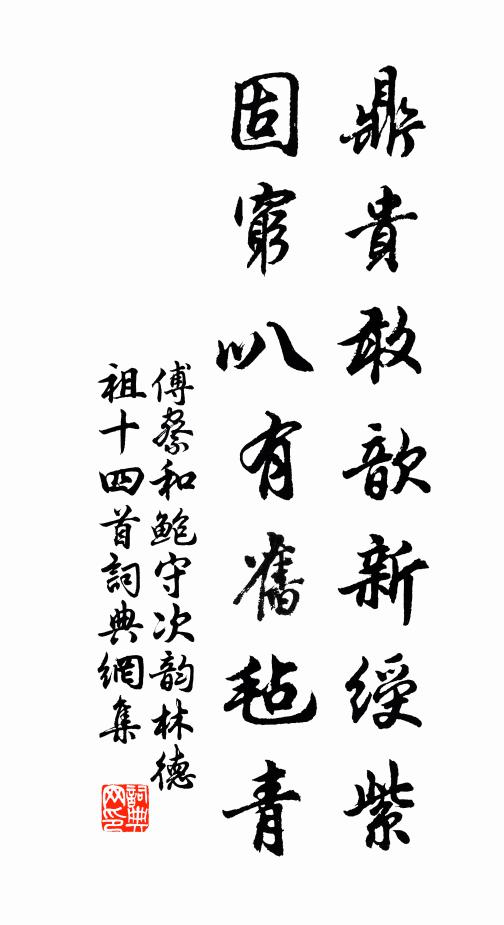 鼎貴敢歆新綬紫
固窮叭有舊毡青
傅察和鮑守次韵林德
祖十四首詞典網集
詞典
网印